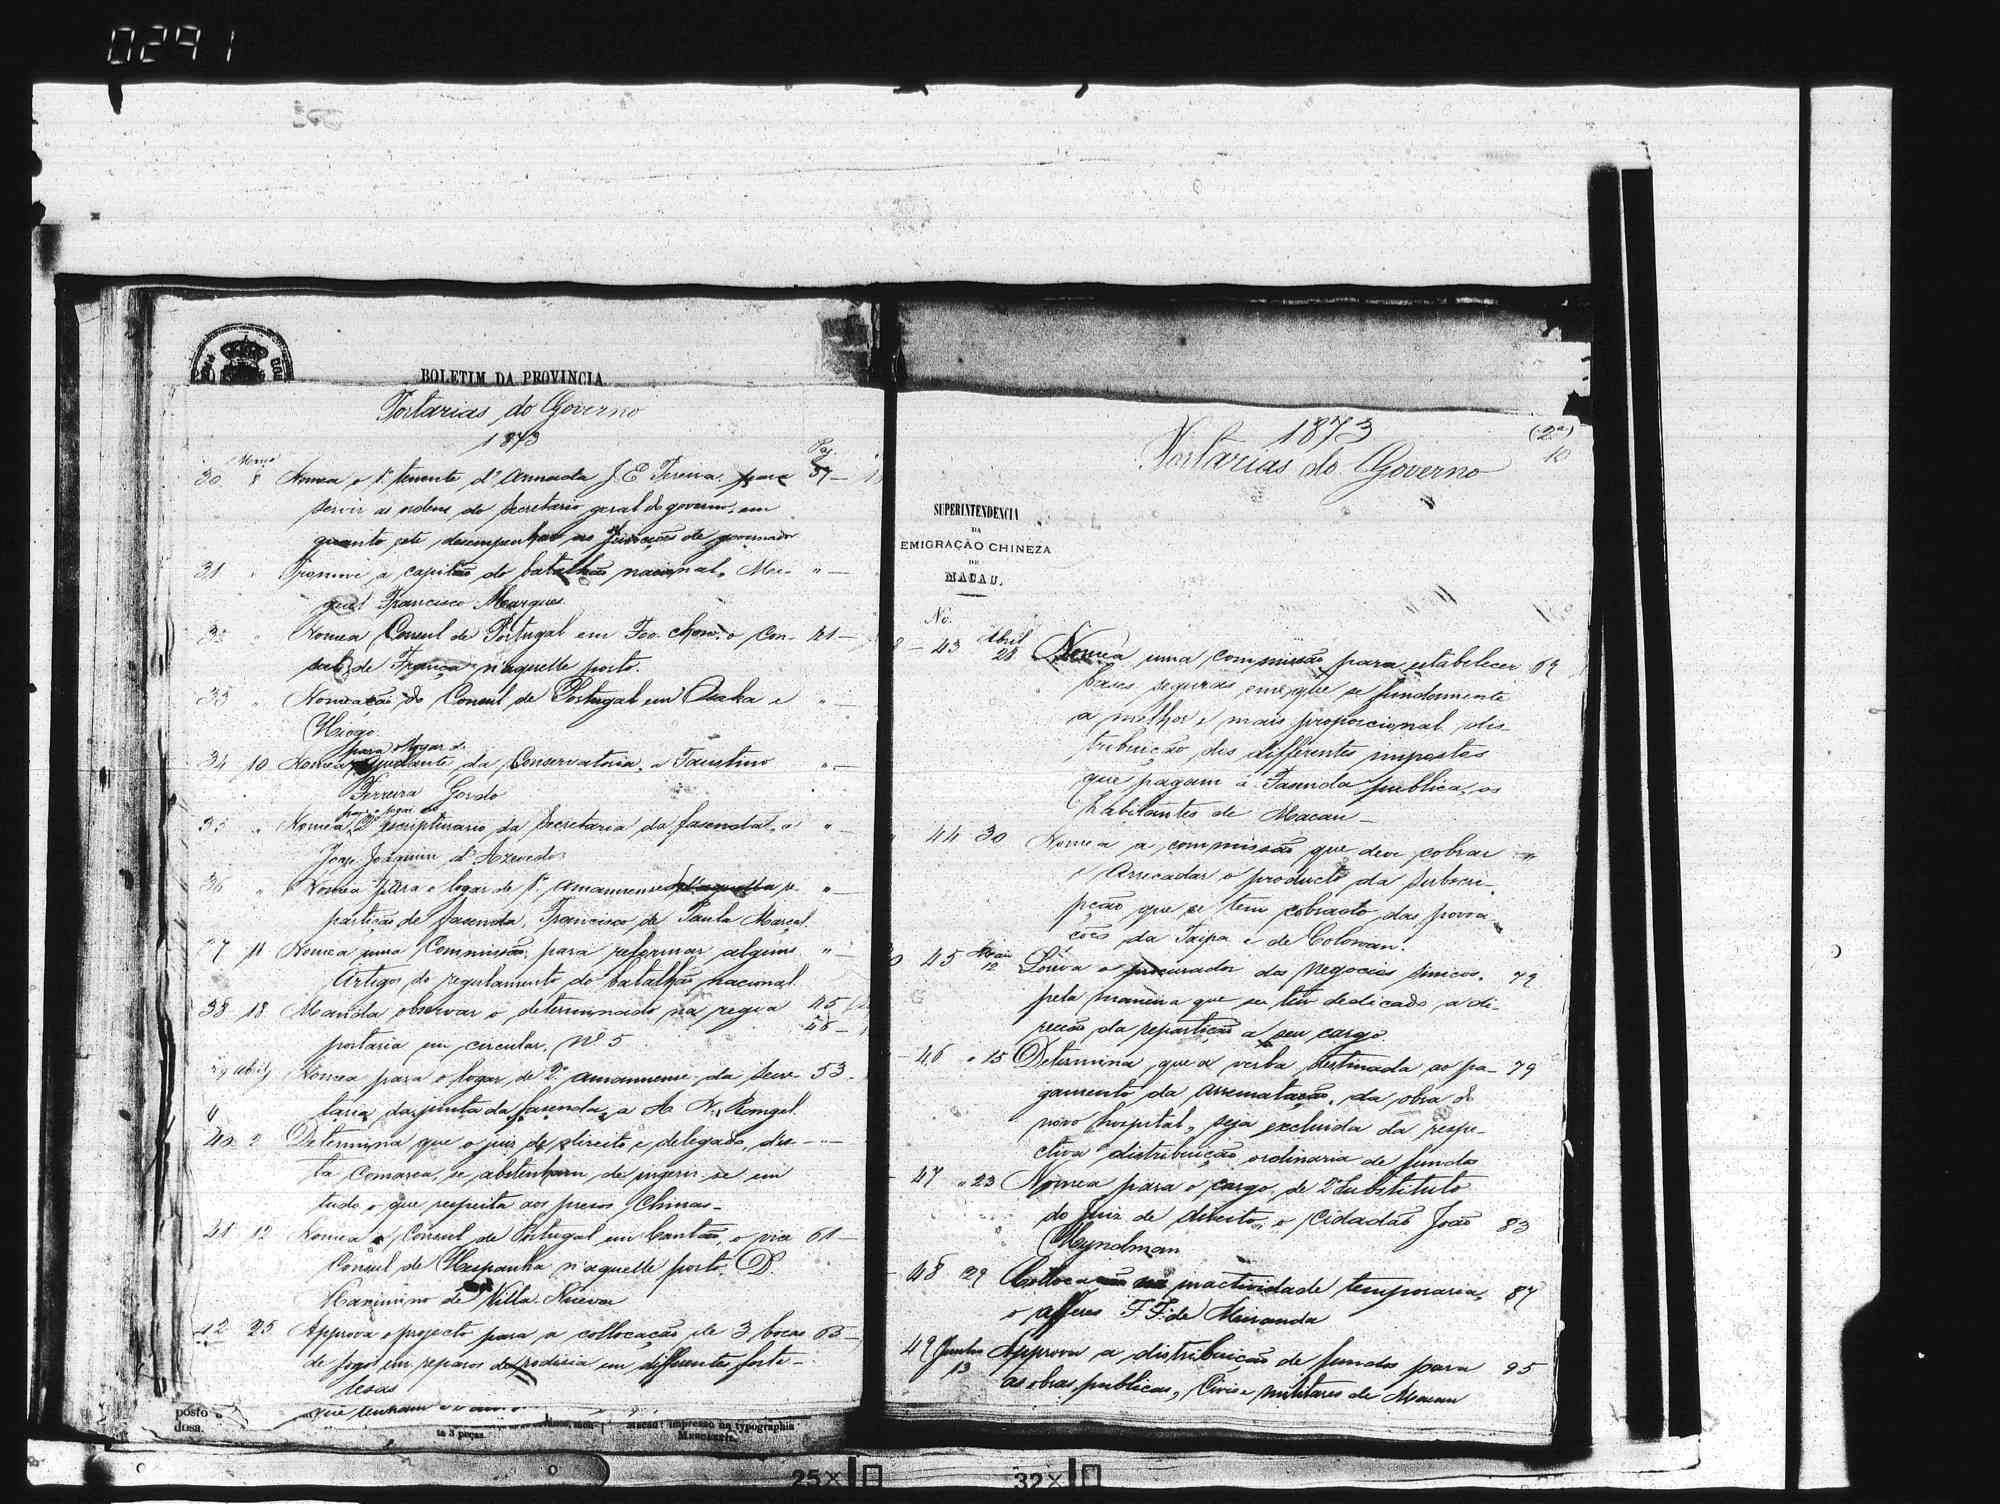 0291
BOLETIM DA PROVINCIA
Portarias do Governo
1873
Pag.
30 Março 8 Nomea o 1º tenente d'Armada J. E. Pereira para 37
servir as ordens do secretario geral do governo, em
quanto este desempenhar as funcções de governador
31 " Promove a capitão do batalhão nacional, Mi- "
guel Francisco Marques.
" Nomea Consul de Portugal em Foo-chow, o Con- 41
sul de França n'aquelle porto.
33 " Nomeação do Consul de Portugal em Osaka e "
Hiogo.
para o logar de
34 10 Nomea ajudante da Conservatoria, a Faustino "
Ferreira Gordo
para o logar de
35 " Nomea 2º escripturario da secretaria da fasenda, a "
Jorge Joaquim d'Azevedo
36 " Nomea para o logar de 1º amanuense d'aquella re- "
partição de fasenda, Francisco de Paula Marçal.
37 11 Nomea uma Commissão, para reformar alguns "
Artigos do regulamento do batalhão nacional
38 18 Manda observar o determinado na regia 45
portaria em circular, Nº 5 48
39 Abril Nomea para o logar de 2º amanuense da secre- 53
taria da junta da fasenda, a A. N. Rangel.
40 2 Determina que o juiz de direito e delegado, des- "
ta Comarca, se abstenham de ingerir-se em
tudo o que respeita aos presos Chinas
41 12 Nomea Consul de Portugal em Cantão, o vice 61
Consul de Hespanha n'aquelle porto, D.
Maximino de Villa Nueva
42 25 Approva o projecto para a collocação de 3 bocas 65
de fogo em reparos de rodisio em differentes forta-
lesas
que tenham
posto o
dosa.
ta 3 peças.
Macau: impresso na typographia
Mercantil.
1873
(2ª)
10
Portarias do Governo
SUPERINTENDENCIA
DA
EMIGRAÇÃO CHINEZA
DE
MACAU.
No.
43 Abril 28 Nomea uma commissão para estabelecer 69
bases seguras em que se fundamente
a melhor e mais proporcional dis-
tribuição dos differentes impostos
que pagam á Fasenda publica, os
habitantes de Macau
44 30 Nomea a commissão que deve cobrar "
e Arrecadar o producto da subscri-
pção que se tem cobrado das povoa-
ções da Taipa e de Colowan.
45 Maio 12 Louva o procurador dos negocios sinicos, 79
pela maneira que se tem dedicado a di-
recção da repartição a seu cargo
46 " 15 Determina que a verba destinada ao pa- 79
gamento da arrematação, da obra do
novo hospital, seja excluida da respe-
ctiva distribuição ordinaria de fundos
47 " 23 Nomea para o cargo de 2º Substituto
do Juiz de direito, o Cidadão João 83
Hyndman
48 29 Colloca na inactividade temporaria, 87
o alferes F. F. de Miranda
49 Junho 13 Approva a distribuição de fundos para 95
as obras publicas, Civis e militares de Macau
25x
32x